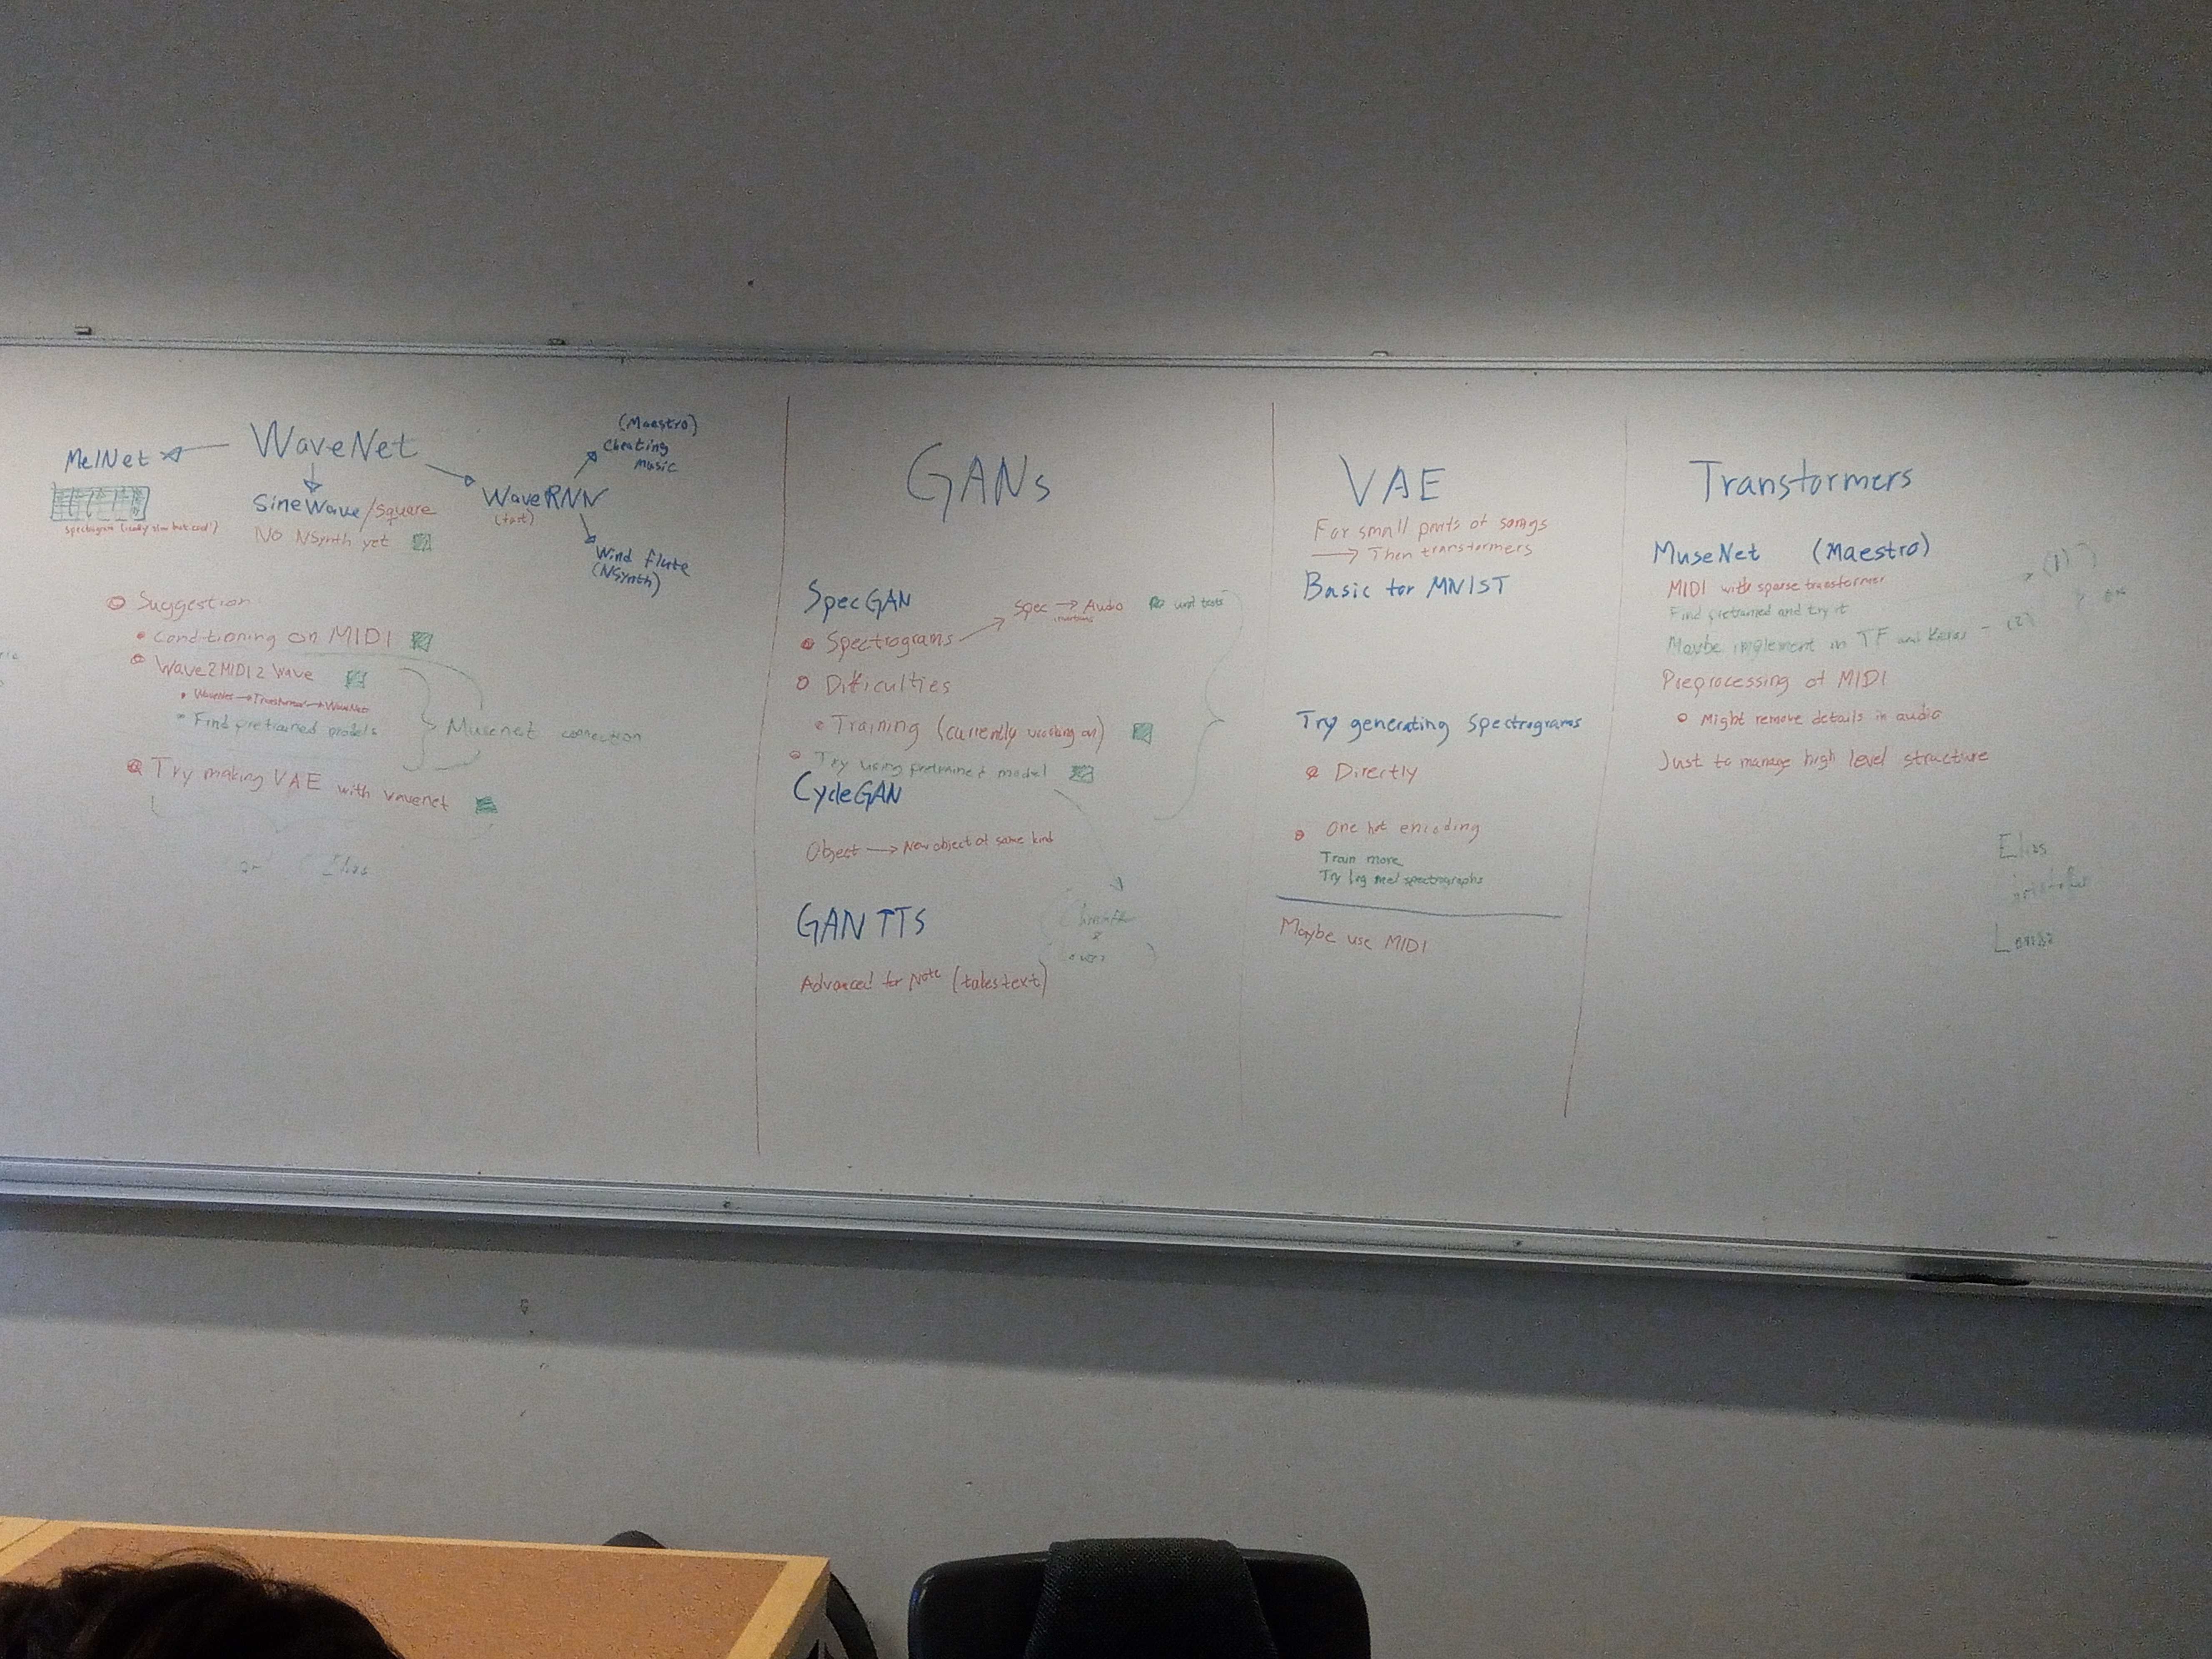 WaveNet
MelNet
SineWave/Square
No NSynth yet
WaveRNN
(fast)
(Maestro)
Cheating
music
Wind flute
(NSynth)
Suggestion
Conditioning on MIDI
Wave2MIDI2Wave
WaveNet → Transformer → WaveNet
Find pretrained models
Musenet connection
Try making VAE with wavenet
or Elias
GANs
SpecGAN
Spectrograms
Spec → Audio
unit tests
Difficulties
Training (currently working on)
Try using pretrained model
CycleGAN
Object → New object of same kind
GAN TTS
Advanced for Note (takes text)
VAE
For small parts of songs
→ Then transformers
Basic for MNIST
Try generating spectrograms
Directly
One hot encoding
Train more
Try log mel spectrographs
Maybe use MIDI
Transformers
MuseNet (Maestro)
MIDI with sparse transformer
Find pretrained and try it
(1)
Maybe implement in TF and Keras - (2)
Preprocessing of MIDI
Might remove details in audio
Just to manage high level structure
Elias